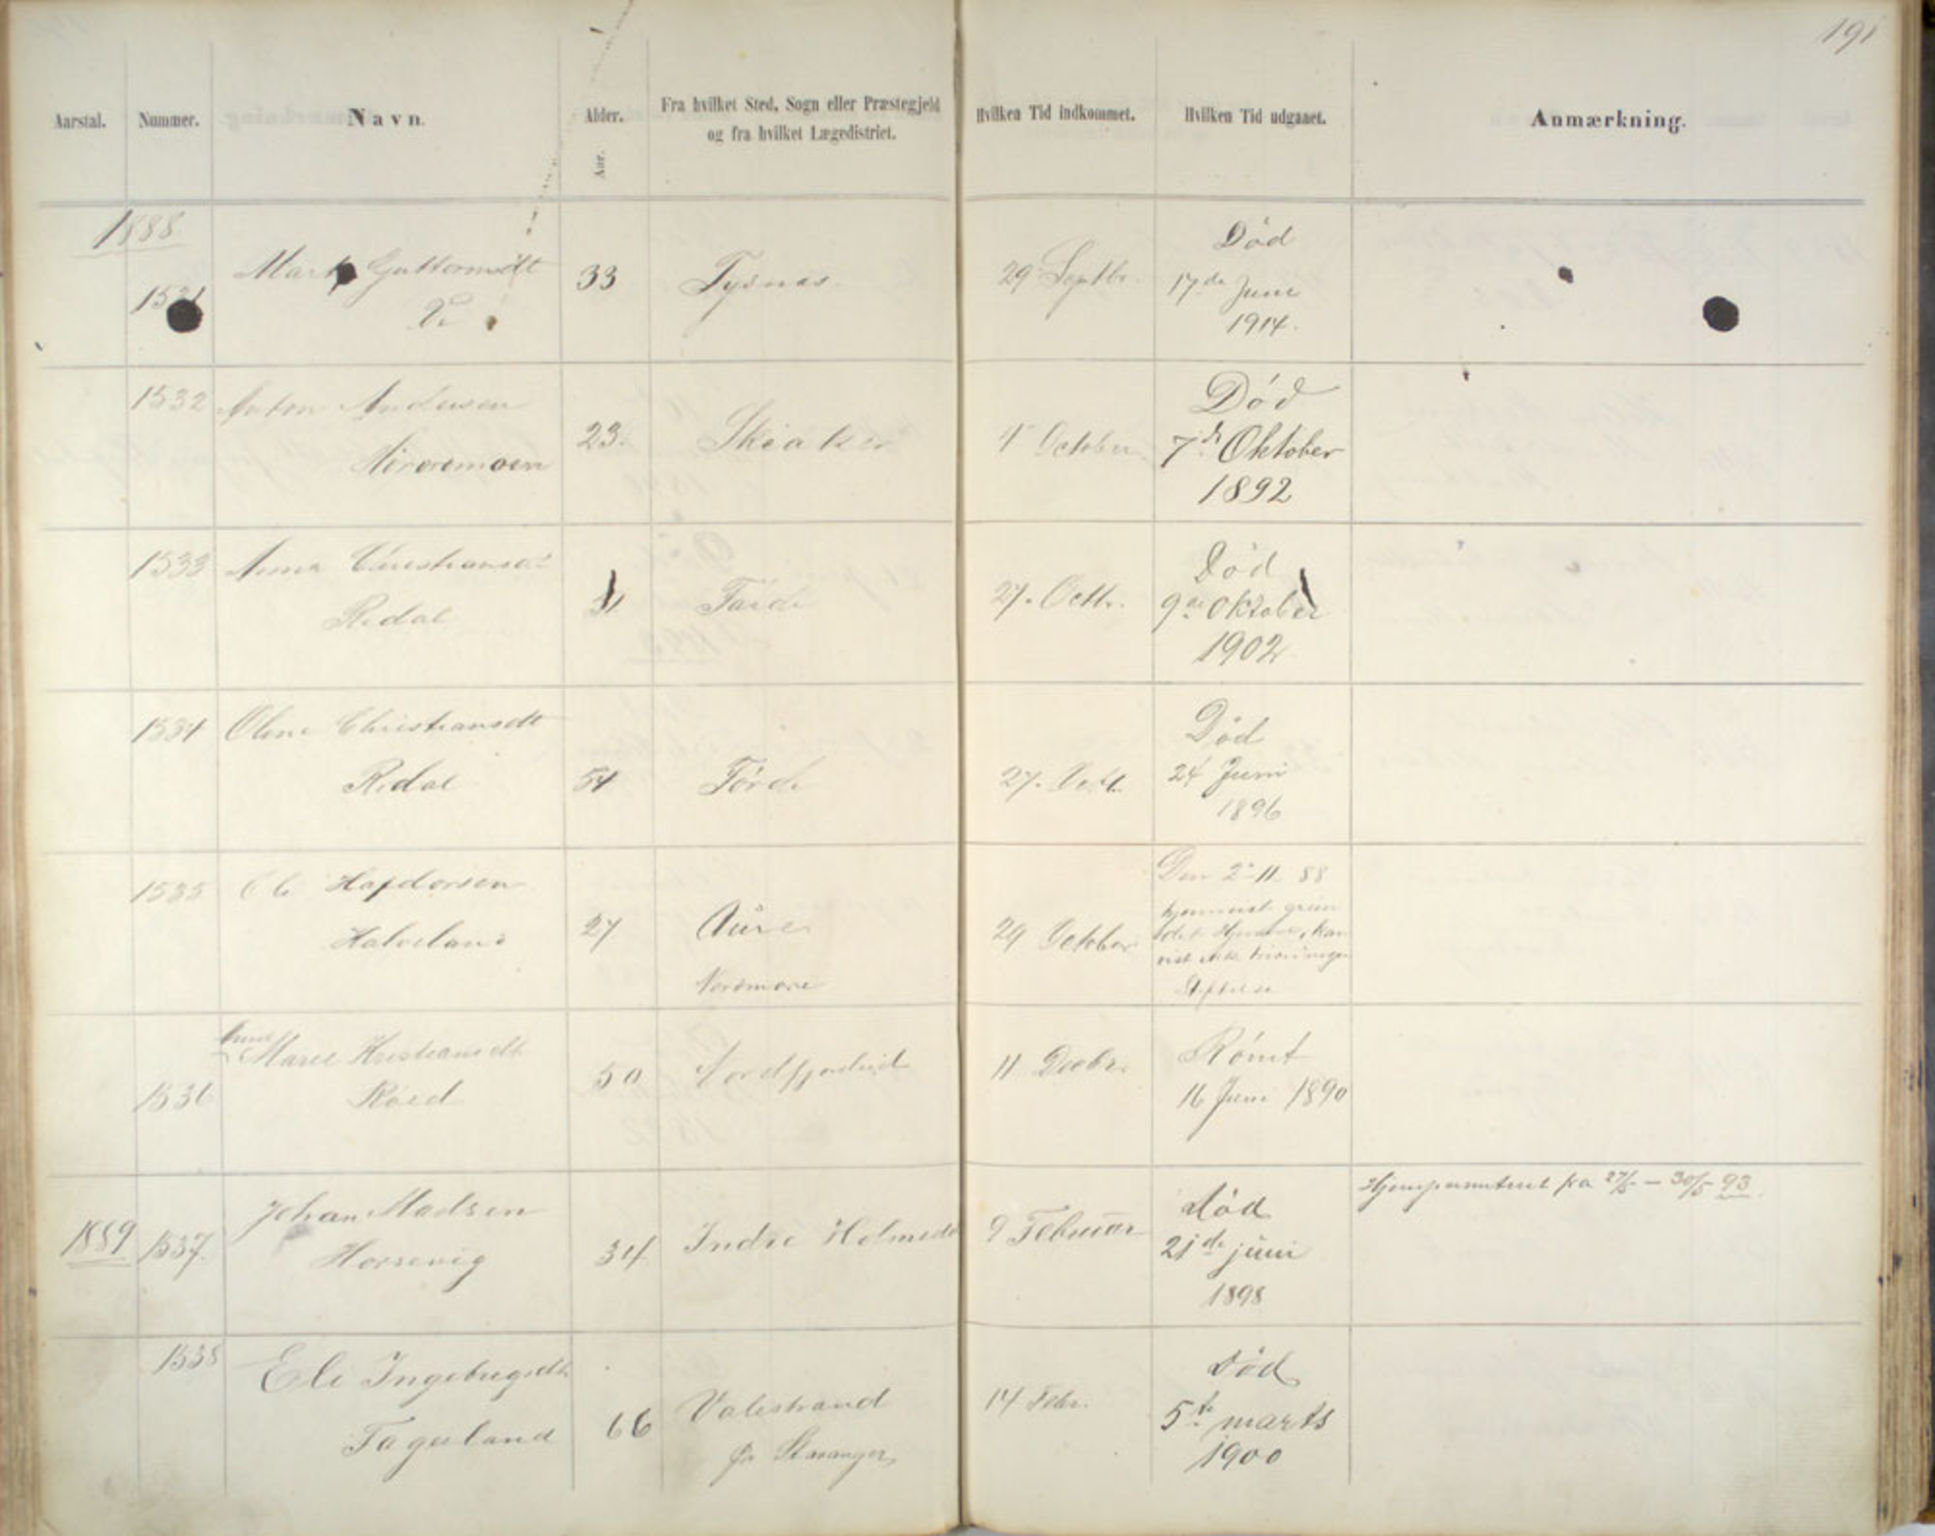 191
Aarstal. Nummer. Navn. Alder. Fra hvilket Sted, Sogn eller Præstegjeld Hvilken Tid indkommet. Hvilken Tid udgaaet. Anmærkning.
Aar. og fra hvilket Lægedistrict.
1888
1531 Guttormsdt 33 Tysnæs. 29 Septbr. Død
17de Juni
1914.
1532 Anton Andersen 23. Skeaker October Død
7de Oktober
1892
1533 Anna Christiansdt
Rødal Førde 27. Octb. Død
9de Oktober
1902
1534 Oline Christiansdt
Rødal 54 Førde 27. Octb. Død
24 Juni
1896
1535 Ole Halfdorsen
Halveland 27 Aure
Nordmøre 29 October Den 2-11 88
hjemvist
Stiftelse
1536 Anne Marie Kristiansdt
Røed 50 Nordfjordeid 11 Decbr. Rømt
16 Juni 1890
1889 1537. Johan Madsen
Horsevig 34 Indre Holmedal 9 Februar død
21de juni
1898 Hjempermiteret fra 27/5 - 30/5 93
1538 Eli Ingebrigtsdt
Fageland 66 Valestrand
Stavanger 14 Febr. død
5te marts
1900